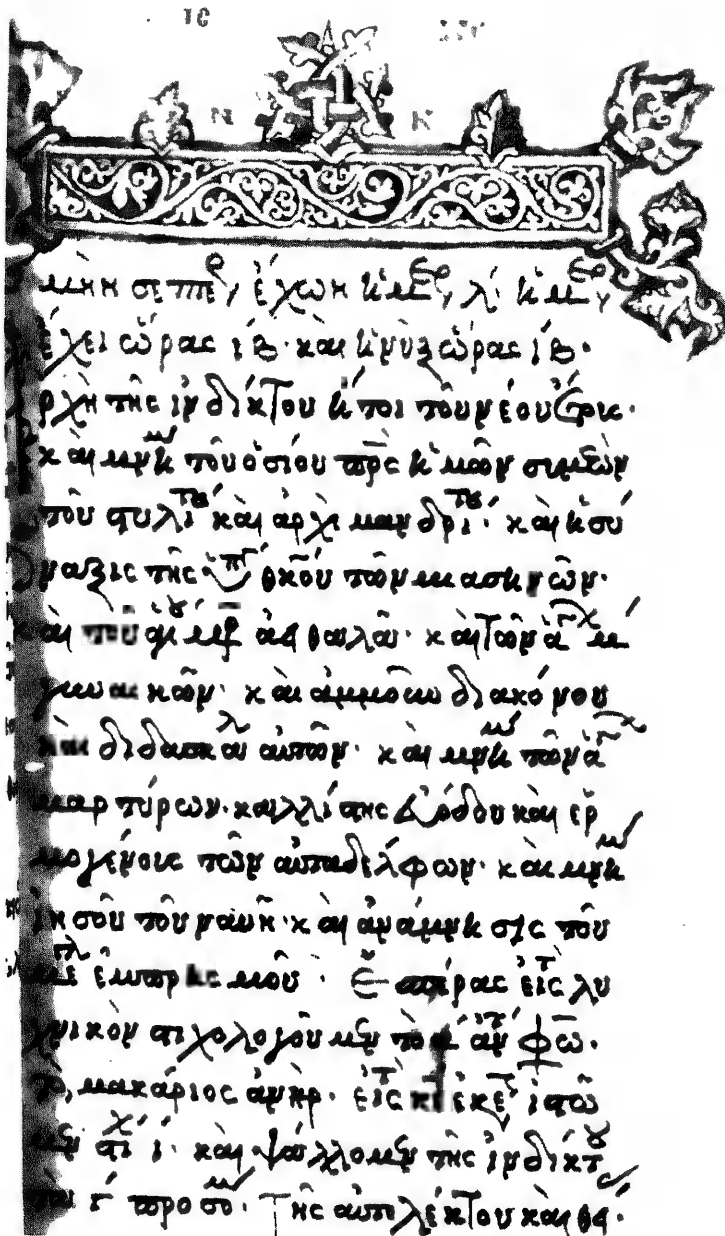 ΙϹ
Ν Κ
μὴν σεπτέ ἔχων ἡμέρ λ ἡ ἡμέρ
ἔχει ὥρας ιβ· καὶ ἡ νὺξ ὥρας ιβ·
ρχὴ τῆς ἰνδίκτου ἤτοι τοῦ νέου ἔτους·
καὶ μνή τοῦ ὁσίου πρς ἡμῶν συμεὼν
τοῦ στυλίτου καὶ ἀρχιμανδρί καὶ ἡ σύ
ναξις τῆς ὑπ θκου τῶν μιασηνῶν·
καὶ τοῦ ἁγι μαρ ἀειθαλᾶ· καὶ τῶν ἁγ μ
γυναικῶν· καὶ ἀμμοῦν διακόνου
καὶ διδασκάλ αὐτῶν· καὶ μνή τῶν ἁγ
μαρτύρων· καλλίστης εὐόδου καὶ ἑρ
μογένους τῶν αὐταδέλφων· καὶ μνή
ἰησοῦ τοῦ ναυῆ· καὶ ἀνάμνησις τοῦ
ἐμπρησμοῦ· Ἑσπέρας εἰς λυ
χνικὸν στιχολογοῦμεν τὸ α ἀντ
τὸ, μακάριος ἀνήρ· εἰς κε ἐκε ἱστῶ
μεν στίχ ι· καὶ ψάλλομεν τῆς ἰνδίκτου
προσό· Τῆς αὐτολέκτου καὶ θεί